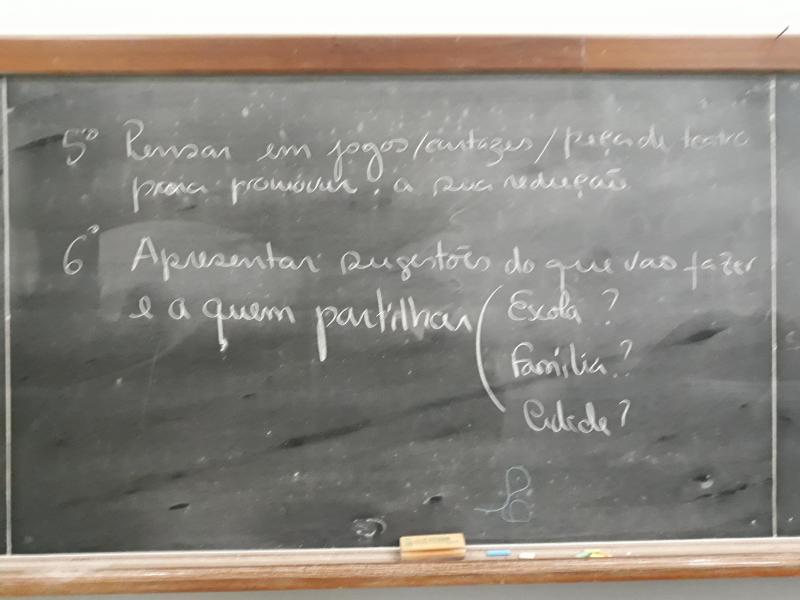 5º Pensar em jogos/cartazes/peça de teatro
para promover a sua redução
6º Apresentar sugestões do que vão fazer
e a quem partilhar ( Escola ?
Família ?
Cidade ?